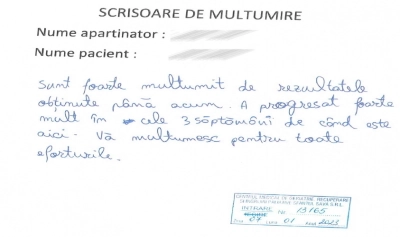 SCRISOARE DE MULTUMIRE
Nume apartinator :
Nume pacient :
Sunt foarte multumit de rezultatele
obținute până acum. A progresat foarte
mult în cele 3 săptămâni de când este
aici. Vă multumesc pentru toate
eforturile.
INTRARE
NR 13165
07 01 2023